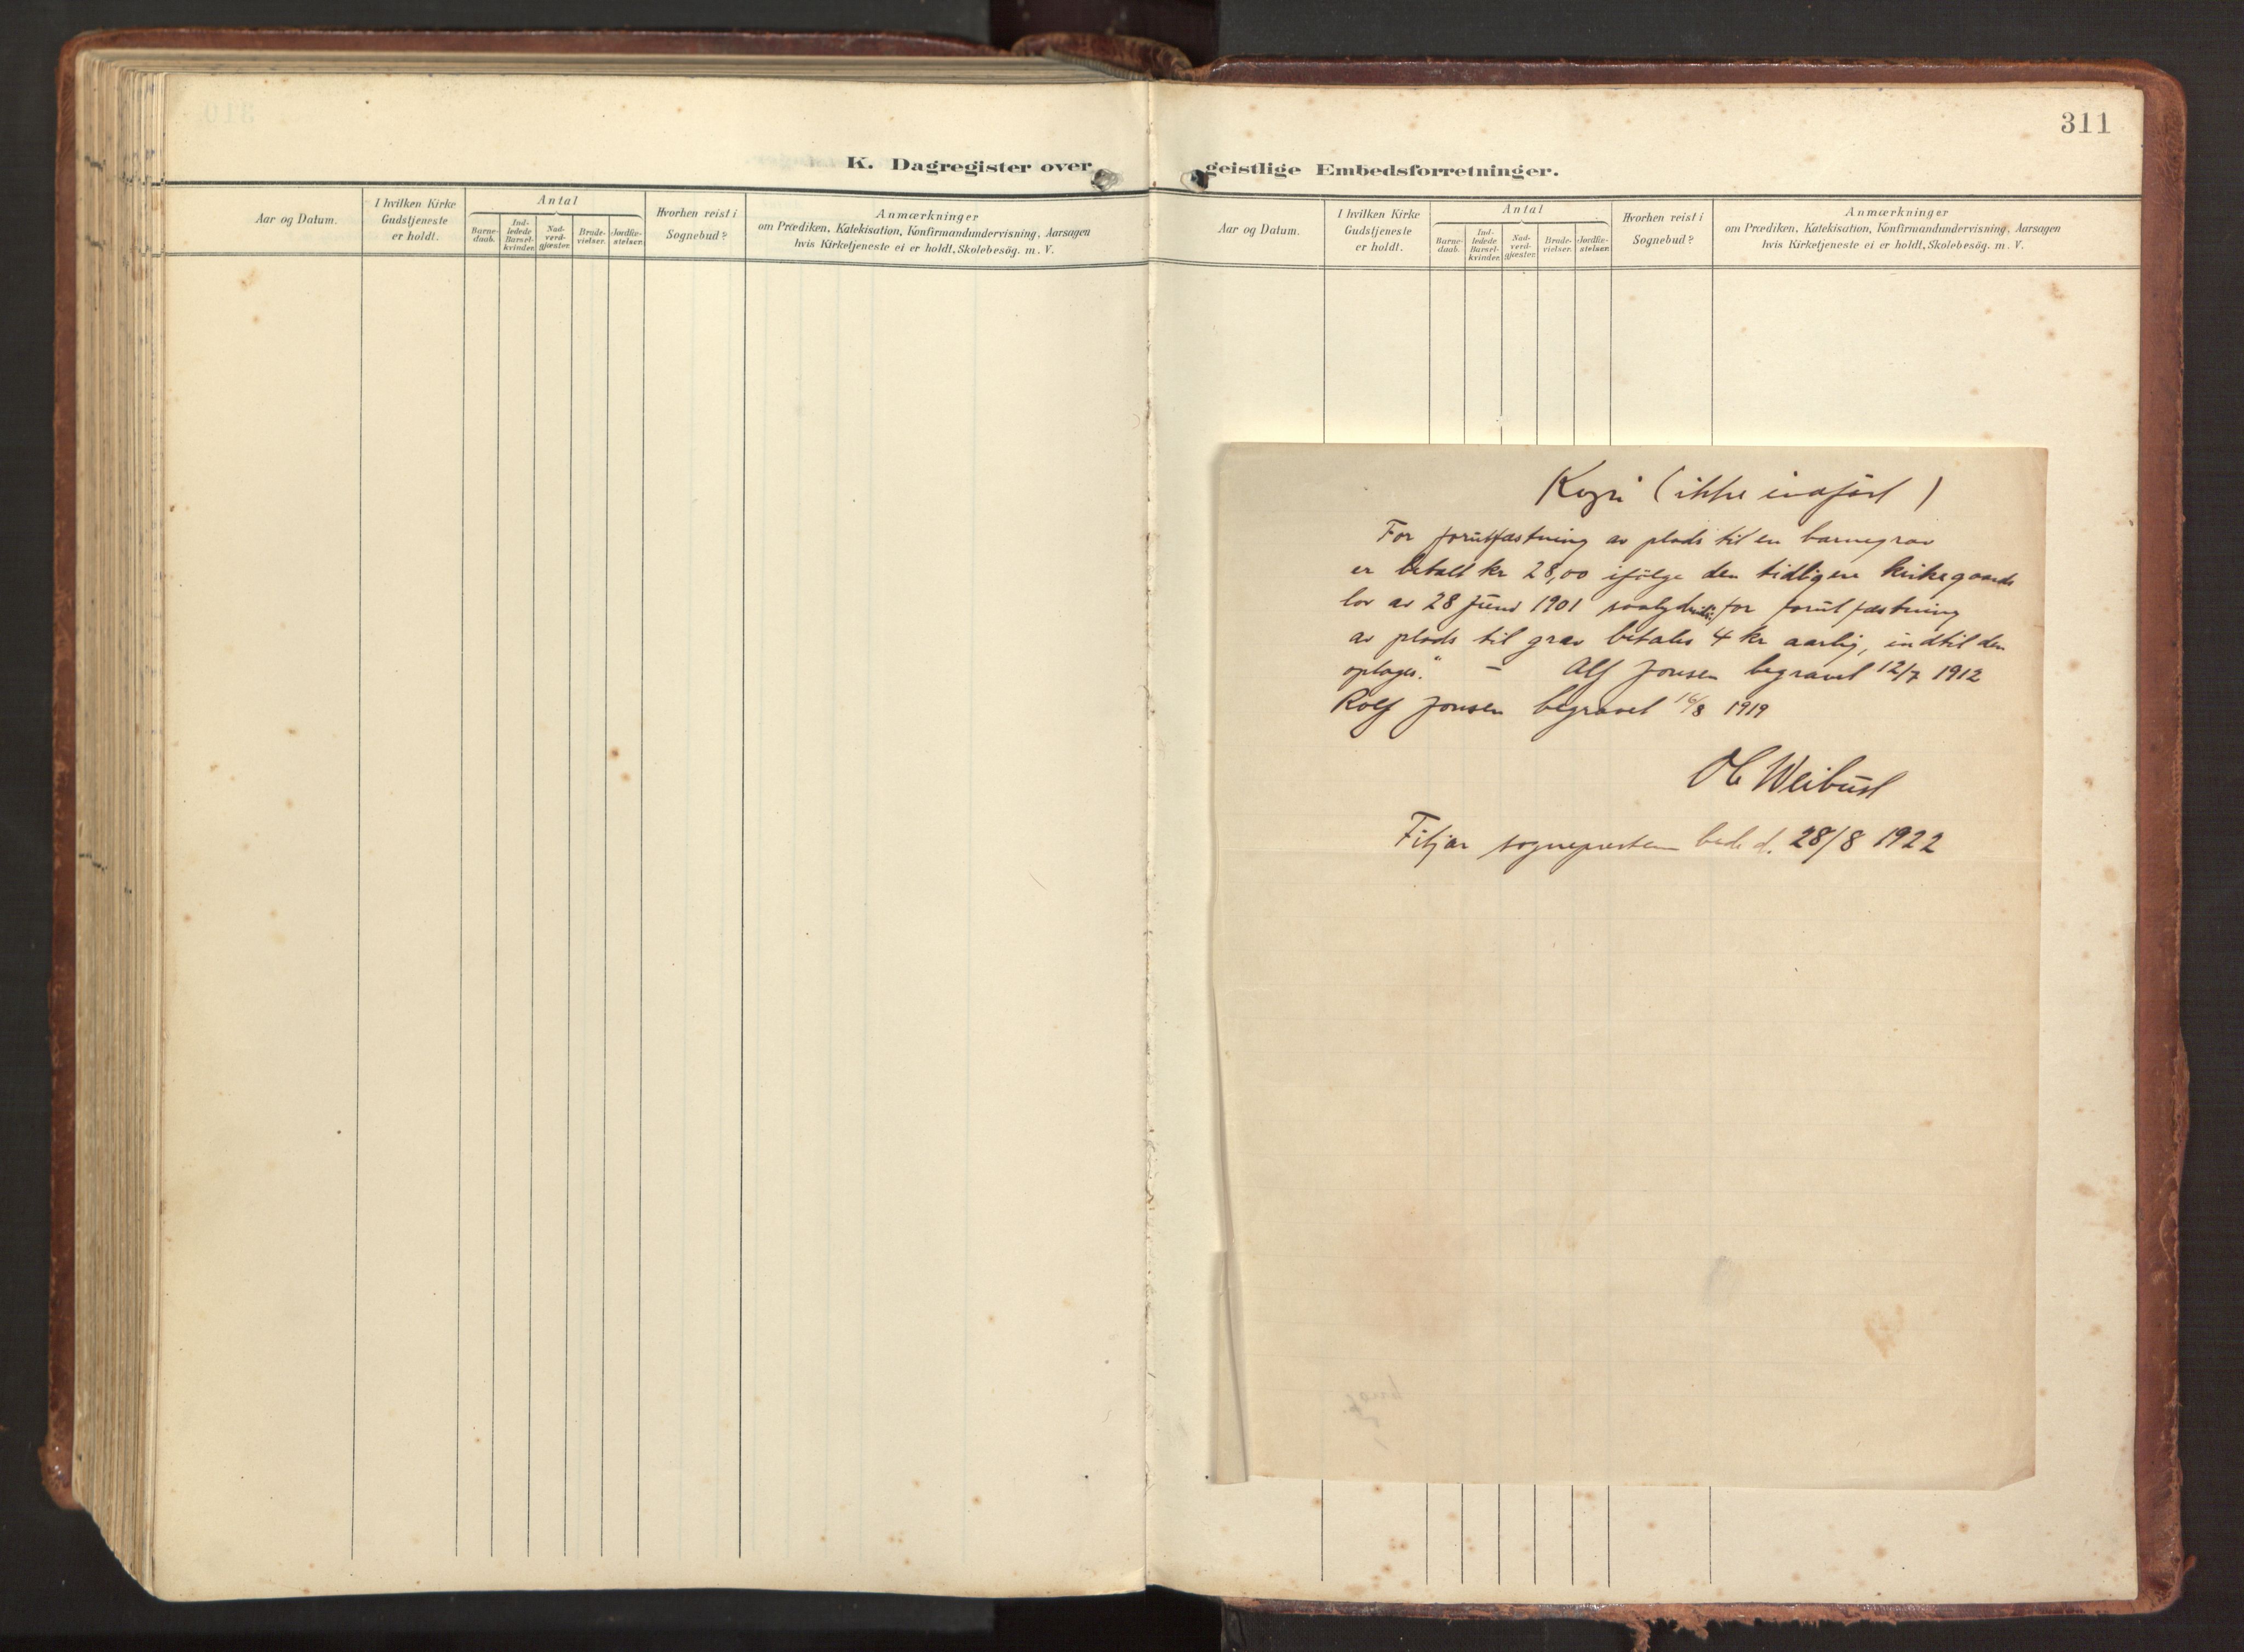 K. Dagregister over
Aar og Datum.
I hvilken Kirke
Gudstjeneste
er holdt.
Antal
Barne-
daab.
Ind-
ledede
Barsel-
kvinder.
Nad-
verd-
gjæster.
Brude-
vielser.
Jordfæ-
stelser.
Hvorhen reist i
Sognebud?
Anmærkninger
om Prædiken, Katekisation, Konfirmandundervisning, Aarsagen
hvis Kirketjeneste ei er holdt, Skolebesög. m. V.
311
geistlige Embedsforretninger.
Aar og Datum.
I hvilken Kirke
Gudstjeneste
er holdt.
Antal
Barne-
daab.
Ind-
ledede
Barsel-
kvinder.
Nad-
verd-
gjæster.
Brude-
vielser.
Jordfæ-
stelser.
Hvorhen reist i
Sognebud?
Anmærkninger
om Prædiken, Katekisation, Konfirmandundervisning, Aarsagen
hvis Kirketjeneste ei er holdt, Skolebesög. m. V.
Kopi (ikke indført)
For forutfæstning av plads til en barnegrav
er betalt kr 28,00 ifølge den tidligere kirkegaards
lov av 28 juni 1901 for forutfæstning
av plads til grav betales 4 kr aarlig, indtil den
optages." – Alf Jonsen begravet 12/7 1912
Rolf Jonsen begravet 16/8 1919
Weibust
Fitjar sogneprestem 28/8 1922